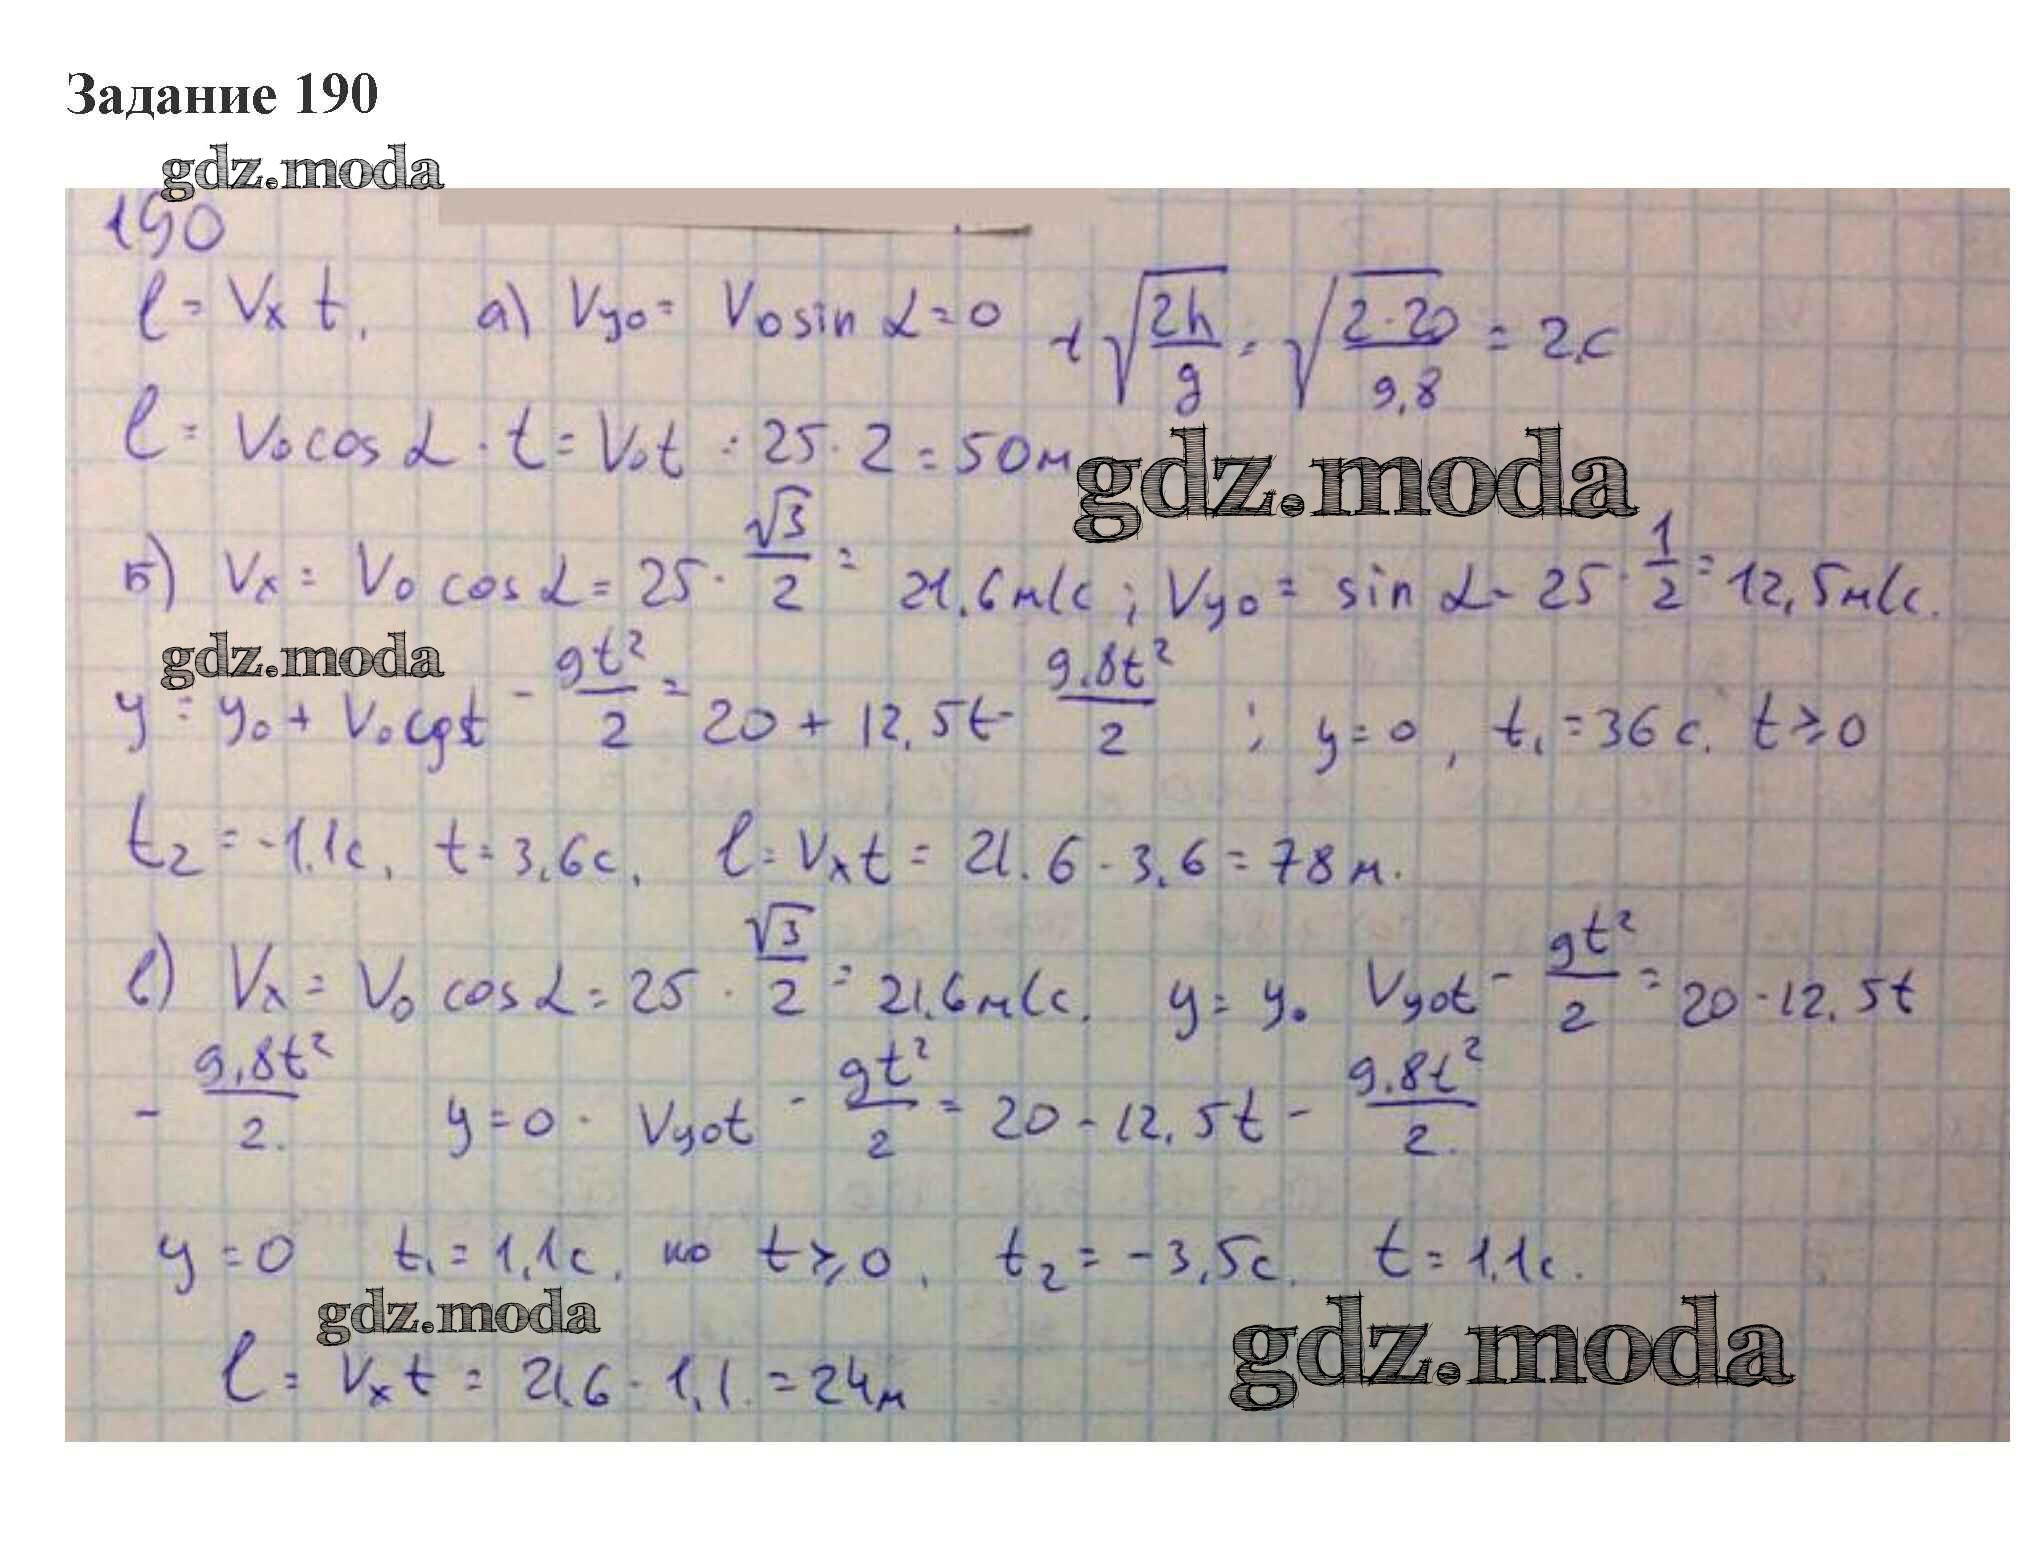 Задание 190
gdz.moda
190
l = Vx t. а) Vy0 = V0 sin α = 0 t √(2h/g) = √(2·20/9,8) = 2с
l = V0 cos α · t = V0t = 25·2 = 50м
gdz.moda
б) Vx = V0 cos α = 25 · √3/2 = 21,6м/с ; Vy0 = sin α = 25 · 1/2 = 12,5м/с.
gdz.moda
y = y0 + V0cgt - gt²/2 = 20 + 12,5t - 9.8t²/2 ; y = 0, t1 = 36 с. t ≥ 0
t2 = -1.1с, t = 3,6с, l = Vxt = 21.6 · 3,6 = 78 м.
в) Vx = V0 cos α = 25 · √3/2 = 21,6м/с. y = y0 Vy0t - gt²/2 = 20 - 12,5t
- 9,8t²/2. y = 0 - Vy0t - gt²/2 = 20 - 12,5t - 9.8t²/2.
y = 0 t1 = 1,1с. но t ≥ 0, t2 = -3,5с. t = 1,1с.
gdz.moda
gdz.moda
l = Vxt = 21,6 · 1,1. = 24м